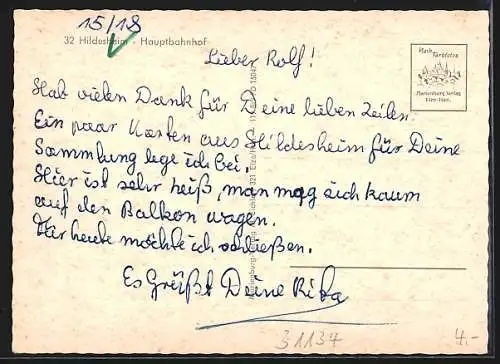 15/18
32 Hildesheim - Hauptbahnhof
Lieber Rolf!
Hab vielen Dank für Deine lieben Zeilen.
Ein paar Karten aus Hildesheim für Deine
Sammlung lege ich bei.
Hier ist sehr heiß, man mag sich kaum
auf den Balkon wagen.
Für heute möchte ich schließen.
Es Grüßt Deine Rita
31134
4.-